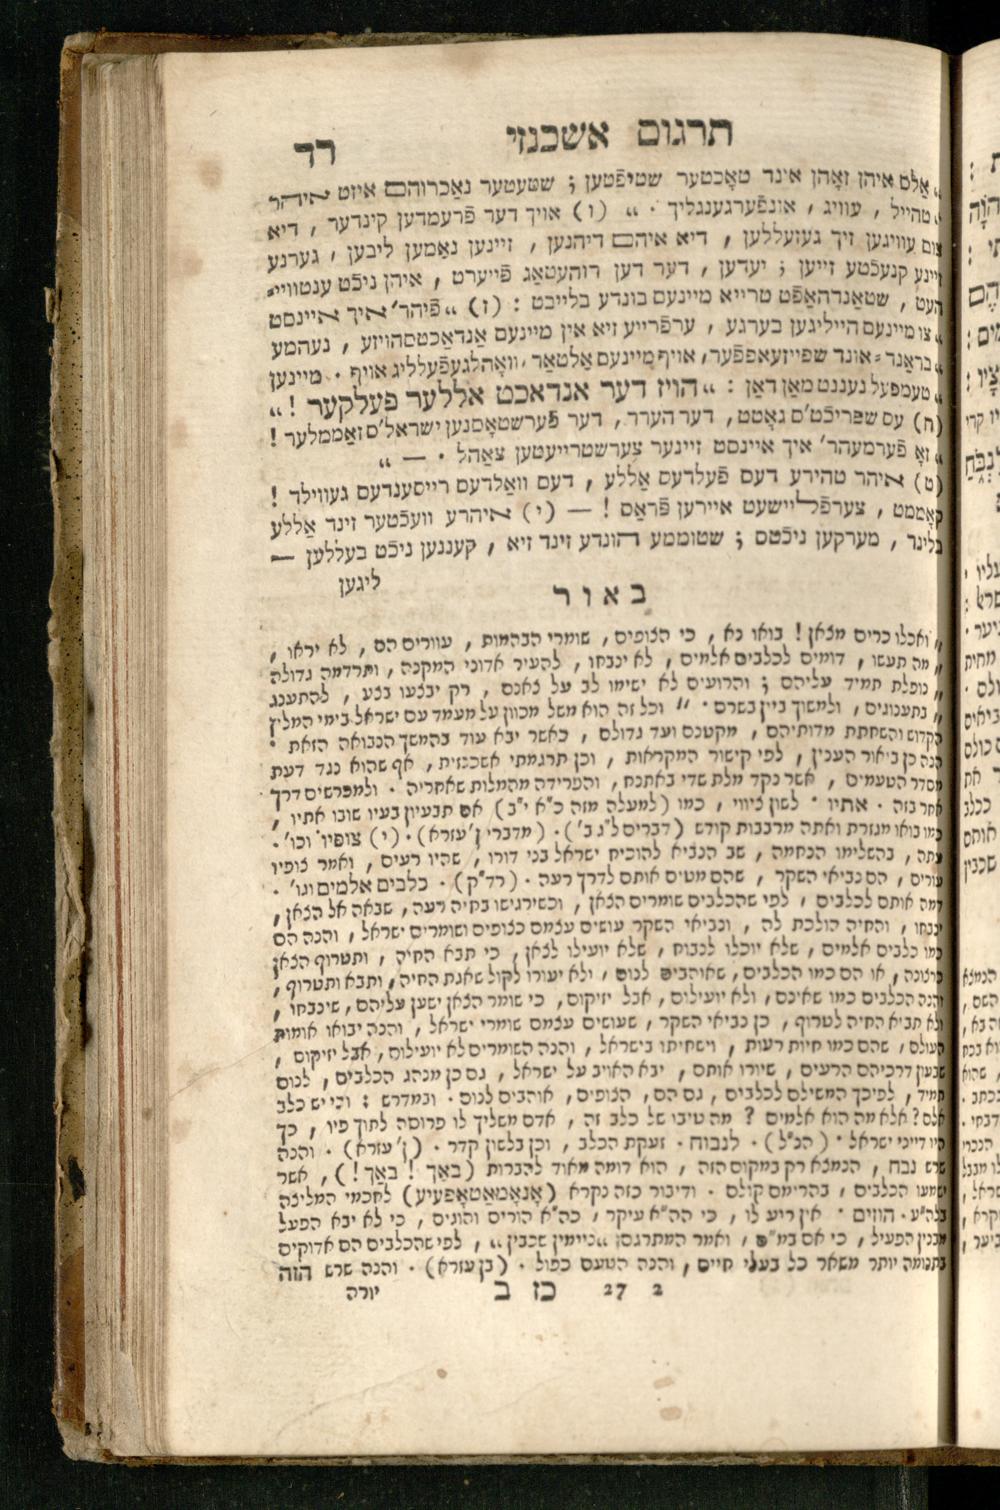 תרגום אשכנזי
רד
„ אַלס איהן זאָהן אינד טאָכטער שטיפֿטען ; שטעטער נאַכרוהם איזט איהר
„ טהייל , עוויג , אונפֿערגענגליך . “ (ו) אויך דער פֿרעמדען קינדער , דיא
צום עוויגען זיך געזעללען , דיא איהם דיהנען , זיינען נאַמען ליבען , גערנע
זיינע קנעכֿטע זייען ; יעדען , דער דען רוהעטאַג פֿייערט , איהן ניכֿט ענטווייא=
העט , שטאַנדהאַפֿט טרייא מיינעם בונדע בלייבט : (ז) „ פֿיהר׳ איך איינסט
„ צו מיינעם הייליגען בערגע , ערפֿרייע זיא אין מיינעם אַנדאַכטסהויזע , נעהמע
„ בראַנד = אונד שפייזעאפפֿער , אויף מיינעם אַלטאַר , וואָהלגעפֿעלליג אויף . מיינען
„ טעמפעל נעננט מאַן דאַן : „ הויז דער אנדאכט אללער פעלקער ! “
(ח) עס שפריכֿט׳ס גאָטט , דער הערר , דער פֿערשטאָסנען ישראל׳ס זאַממלער !
„ זאָ פֿערמעהר׳ איך איינסט זיינער צערשטרייעטען צאַהל . — “
(ט) איהר טהירע דעם פֿעלדעס אַללע , דעם וואַלדעס רייסענדעס געווילד !
קאָממט , צערפֿליישעט אייערען פֿראַס ! — (י) איהרע וועכֿטער זינד אַללע
בלינד , מערקען ניכֿטס ; שטוממע הונדע זינד זיא , קעננען ניכֿט בעללען —
ליגען
באור
„ ואכלו כרים מצאן ! בואו נא , כי הצופים , שומרי הבהמות , עוורים הם , לא יראו ,
„ מה תעשו , דומים לכלבים אלמים , לא ינבחו , להעיר אדוני המקנה , ותרדמה גדולה
„ נופלת תמיד עליהם ; והרועים לא ישימו לב על צאנם , רק יבצעו בצע , להתענג
„ בתענוגים , ולמשוך ביין בשרם . “ וכל זה הוא משל מכוון על מעמד עם ישראל בימי המליץ
הקדוש והשחתת מדותיהם , מקטנם ועד גדולם , כאשר יבא עוד בהמשך הנבואה הזאת .
הנה כן ביאור הענין , לפי קישור המקראות , וכן תרגמתי אשכנזית , אף שהוא נגד דעת
מסדר הטעמים , אשר נקד מלת שדי באתנח , והפרידה מהמלות שאחריה . ולמפרשים דרך
אחר בזה . אתיו . לשון ציווי , כמו (למעלה מזה כ״א י״ב) אם תבעיון בעיו שובו אתיו ,
כמו בואו מגזרת ואתה מרבבות קודש (דברים ל״ג ב׳) . (מדברי ן׳ עזרא) . (י) צופיו וכו׳ .
עתה , בהשלימו הנחמה , שב הנביא להוכיח ישראל בני דורו , שהיו רעים , ואמר צופיו
עורים , הם נביאי השקר , שהם מטים אותם לדרך רעה . (רד״ק) . כלבים אלמים וגו׳ .
דמה אותם לכלבים , לפי שהכלבים שומרים הצאן , וכשירגישו בחיה רעה , שבאה אל הצאן ,
ינבחו , והחיה הולכת לה , ונביאי השקר עושים עצמם כצופים ושומרים ישראל , והנה הם
כמו כלבים אלמים , שלא יוכלו לנבוח , שלא יועילו לצאן , כי תבא החיה , ותטרוף הצאן
כרצונה , או הם כמו הכלבים , שאוהבים לנום , ולא יעורו לקול שאגת החיה , ותבא ותטרוף ,
והנה הכלבים כמו שאינם , ולא יועילום , אבל יזיקום , כי שומר הצאן ישען עליהם , שינבחו ,
ולא תביא החיה לטרוף , כן נביאי השקר , שעושים עצמם שומרי ישראל , והנה יבואו אומות
העולם , שהם כמו חיות רעות , וישחיתו בישראל , והנה השומרים לא יועילום , אבל יזיקום ,
שבעון דרכיהם הרעים , שיורו אותם , יבא האויב על ישראל , גם כן מנהג הכלבים , לנום
תמיד , לפיכך המשילם לכלבים , גם הם , הצופים , אוהבים לנום . ובמדרש : וכי יש כלב
אלם ? אלא מה הוא אלמים ? מה טיבו של כלב זה , אדם משליך לו פרוסה לתוך פיו , כך
היו דייני ישראל . (הנ״ל) . לנבוח . זעקת הכלב , וכן בלשון קדר . (ן׳ עזרא) . והנה
שרש נבח , הנמצא רק במקום הזה , הוא דומה מאוד להברות (באַך ! באַך !) , אשר
ישמעו הכלבים , בהרימם קולם . ודיבור כזה נקרא (אָנאָמאַטאָפעיע) לחכמי המליצה
בלה״ע . הוזים . אין ריע לו , כי הה״א עיקר , כה״א הורים והוגים , כי לא יבא הפעל
מבנין הפעיל , כי אם במ״ם , ואמר המתרגם : „ ניימין שכבין “ , לפי שהכלבים הם אדוקים
בתנומה יותר משאר כל בעלי חיים , והנה הטעם כפול . (בן עזרא) . והנה שרש הזה
2 27 כז ב יורה